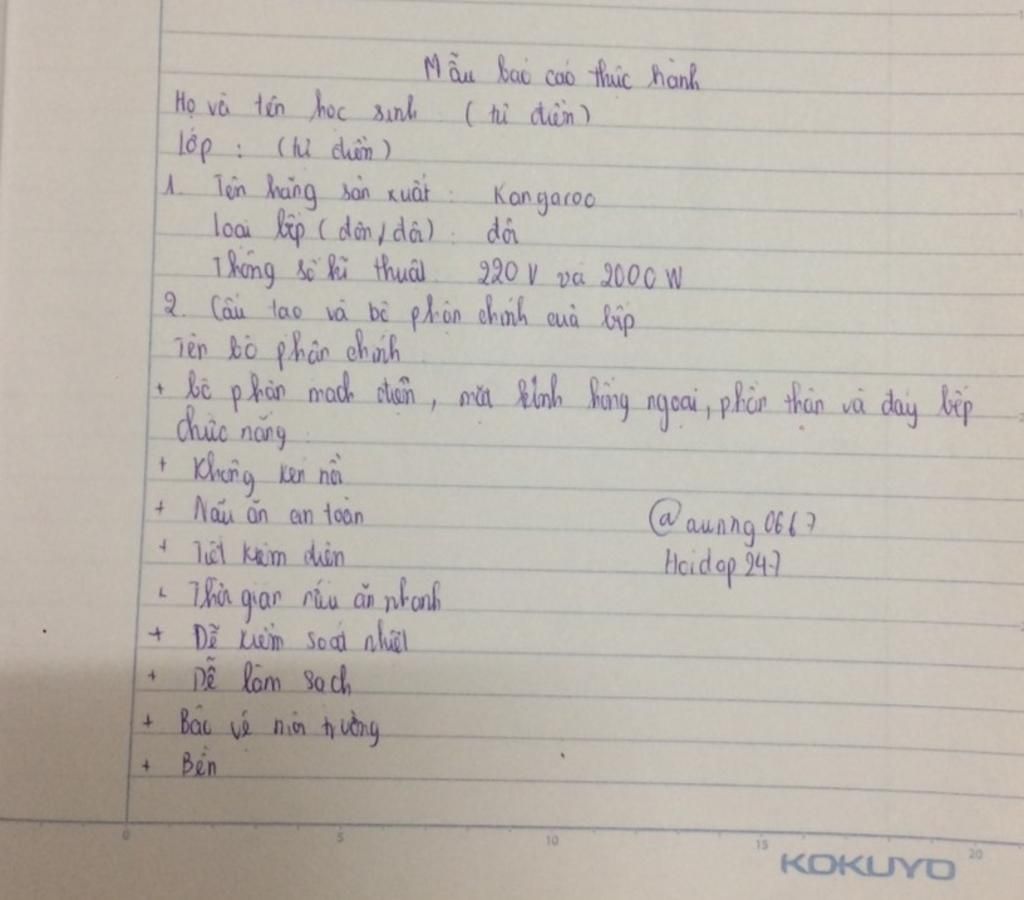 Mẫu báo cáo thực hành
Họ và tên học sinh (tự điền)
Lớp : (tự điền)
1. Tên hãng sản xuất : Kangaroo
Loại bếp (đơn/đôi) : đôi
Thông số kĩ thuật 220 V và 2000 W
2. Cấu tạo và bộ phận chính của bếp
Tên bộ phận chính
+ bộ phận mạch điện, mặt kính hồng ngoại, phần thân và đáy bếp
chức năng :
+ Không kén nồi
+ Nấu ăn an toàn
+ Tiết kiệm điện
+ Thời gian nấu ăn nhanh
+ Dễ kiểm soát nhiệt
+ Dễ làm sạch
+ Bảo vệ môi trường
+ Bền
@aunng0667
Hoidap247
0 5 10 15 20
KOKUYO